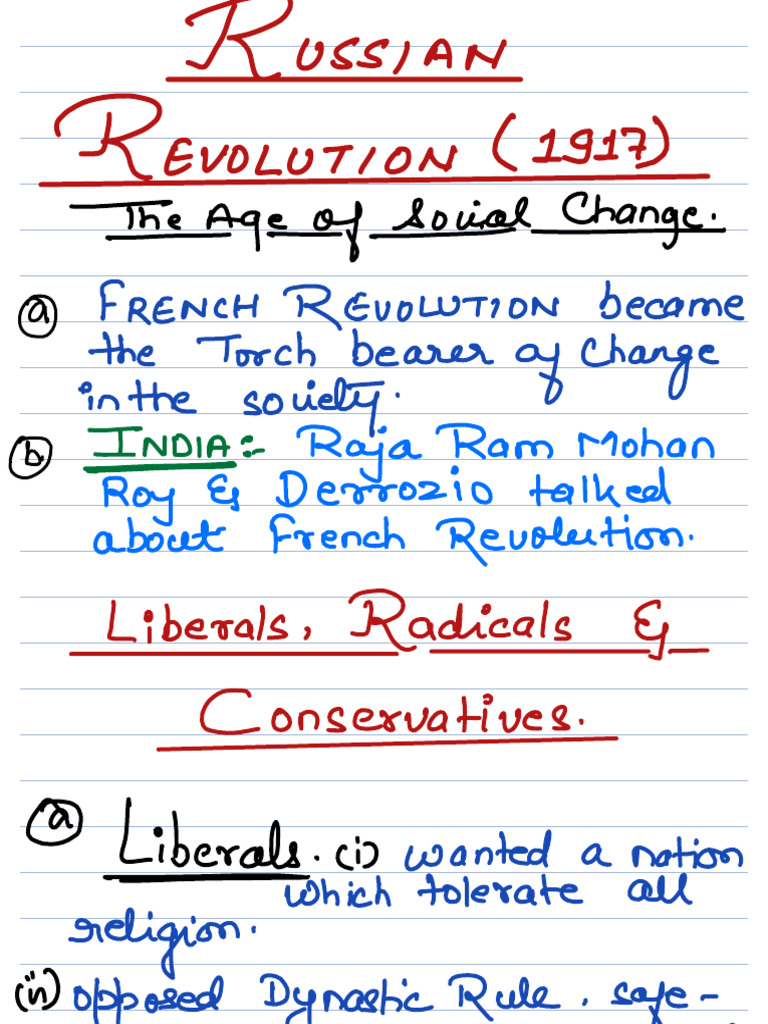 RUSSIAN
REVOLUTION (1917)
The Age of Social Change.
(a) FRENCH REVOLUTION became
the Torch bearer of change
in the society.
(b) INDIA:- Raja Ram Mohan
Roy & Derrozio talked
about French Revolution.
Liberals, Radicals &
Conservatives.
(a) Liberals. (i) wanted a nation
which tolerate all
religion.
(ii) opposed Dynastic Rule. safe-